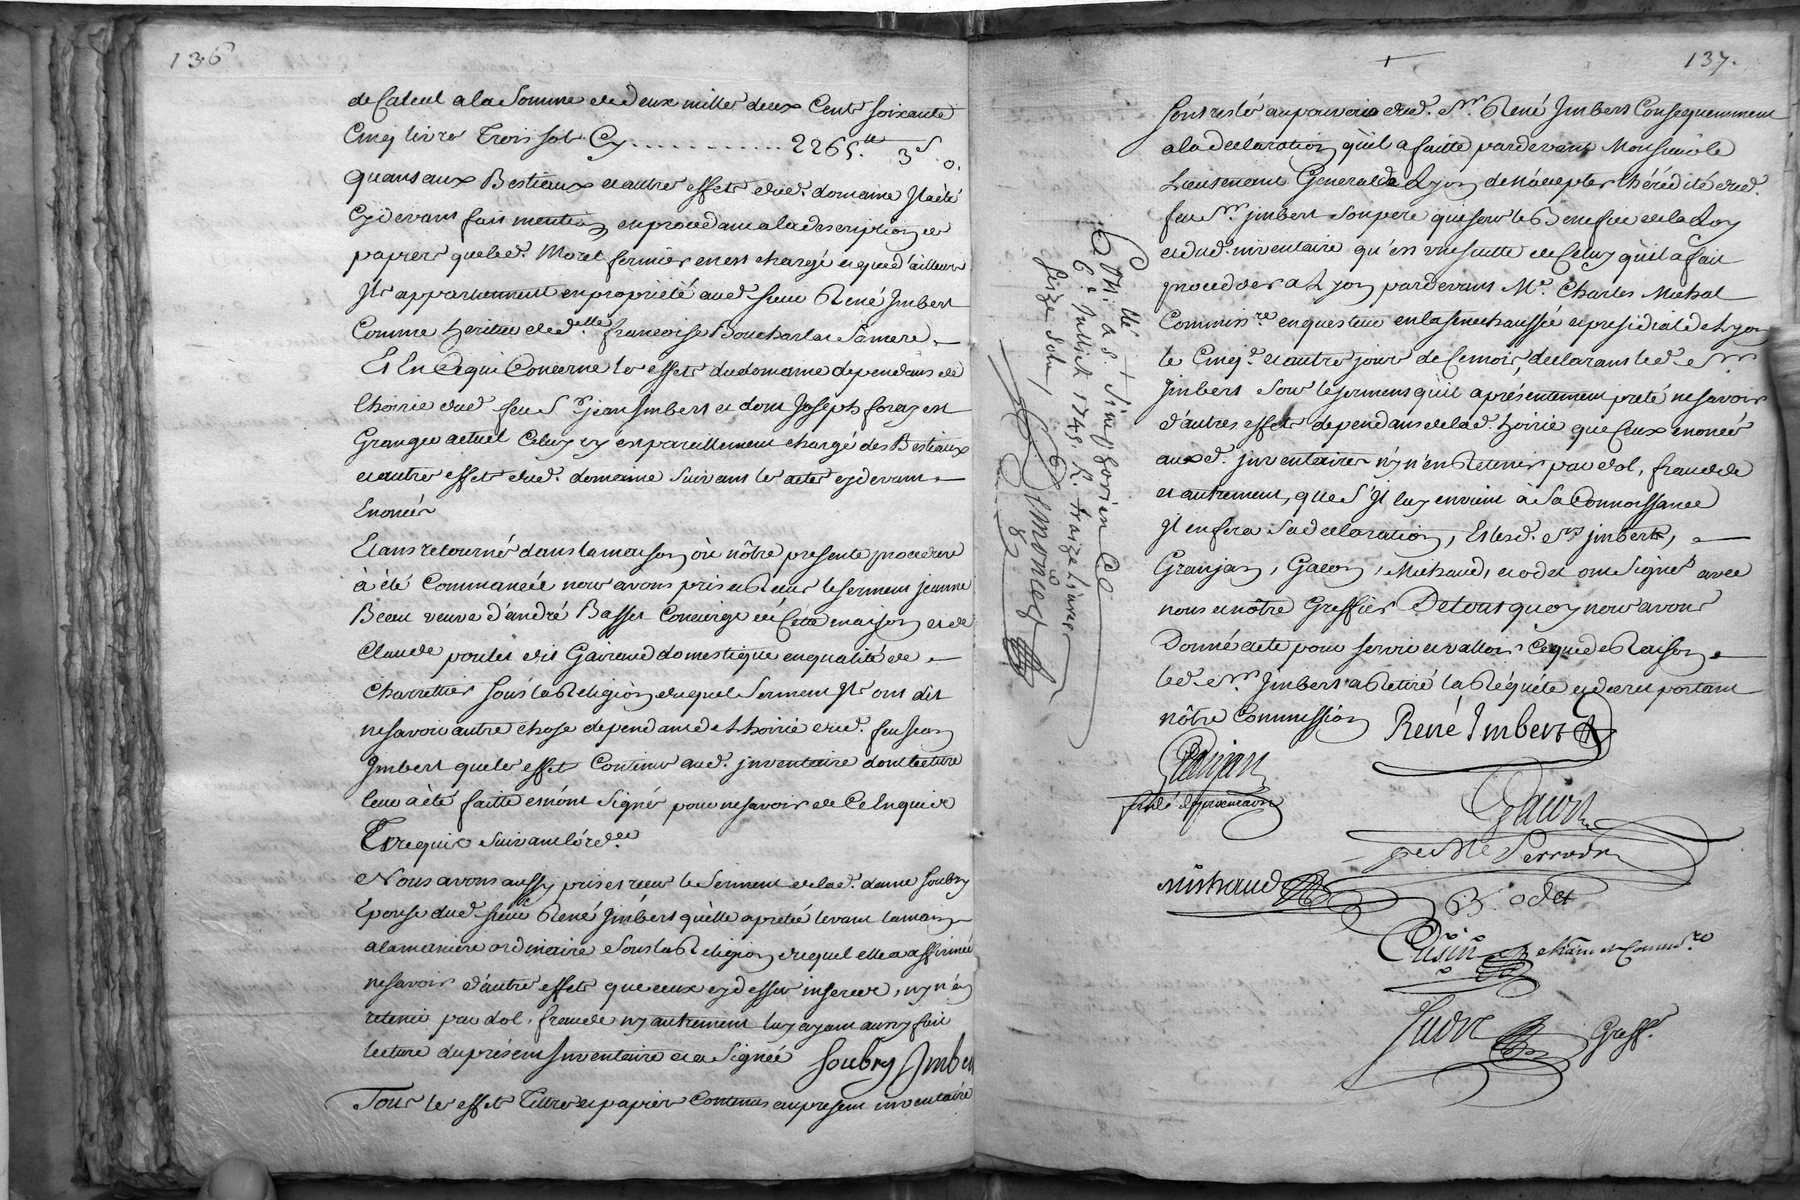 136
de Calcul a la Somme de Deux mille deux Cent Soixante
Cinq livres Trois sols Cy ............ 2265.tt 3.s 0.
quant aux Bestiaux et autres effets dud. domaine Il a été
Cydevant fait mention en procedant a la description des
papiers que led. Morel fermier en est chargé et que d'ailleurs
Ils appartiennent en propriété aud. sieur René Imbert
Comme heritier de d.elle françoise Boucharlat sa mere. —
Et En Ce qui Concerne les effets du domaine dépendans de
lhoirie dud. feu S.r Jean Imbert et dont Joseph forazest
Granger actuel Celuy cy en pareillement chargé des Bestiaux
et autres effets dud. domaine Suivant les actes cydevant —
Enoncés
Etans retournés dans la maison où nôtre presente procedure
à été Commancée nous avons pris et Reçu le serment jeanne
Beau veuve d'andré Basset Concierge de Cette maison et de
Claude poulet dit Gairaud domestique en qualité de —
Charretier Sous la Religion duquel Serment Ils ont dit
ne savoir autre chose dependant de Lhoirie dud. feu sieur
Imbert que les effets Contenus aud. inventaire dont lecture
leur a été faitte et n'ont Signés pour ne savoir de Ce Enquis et
Requis Suivant lord.ce
Nous avons aussy pris et reçu le Serment de lad. dame Soubry
Epouse dud. sieur René Imbert quelle a preté levant la main
a la maniere ordinaire Sous la Religion duquel elle a affirmée
ne savoir d'autre effets que ceux cy dessus inserés, ny n'en
retenir par dol, fraude ny autrement luy ayant aussy fait
lecture du présent Inventaire et a Signée Soubry Imbert
Tous les effets Tittres et papiers Contenus au present inventaire
137.
Sont resté au pouvoir dud. S.r René Imbert Consequemment
a la declaration qu'il a faitte pardevant Monsieur le
Lieutenant General de Lyon de n'accepter lhérédité dud.
feu S.r imbert son pere que sous le Benefice de la Loy
et dud. inventaire qu'en une suitte de Celuy qu'il a fait
proceder a Lyon pardevant M.e Charles Michal
Commiss.re enquesteur en la senechaussée et presidial de Lyon
le Cinq.e et autres jours de Ce mois, declarant led. S.r
Imbert Sous le serment qu'il a présentement preté ne savoir
d'autres effets dependans de lad. hoirie que Ceux enoncés
auxd. inventaires n'y n'en Retenir par dol, fraude
et autrement, que S'il luy en vient à Sa Connoissance
Il en fera Sa declaration, Et lesd. S.rs imbert, —
Granjan, Gacon, Michaud, et odet ont Signés avec
nous et nôtre Greffier De tout quoy nous avons
Donné acte pour servir et valloir Ce que de Raison —
led. S.r Imbert a Retiré la Requéte et decret portant
nôtre Commission
René Imbert
Granjan
Gacon
michaud
B. odet
Greff.r
Con.lle a S.t Simphorien Le
6.e Juillet 1745 R. traize Livres
Seize sols,